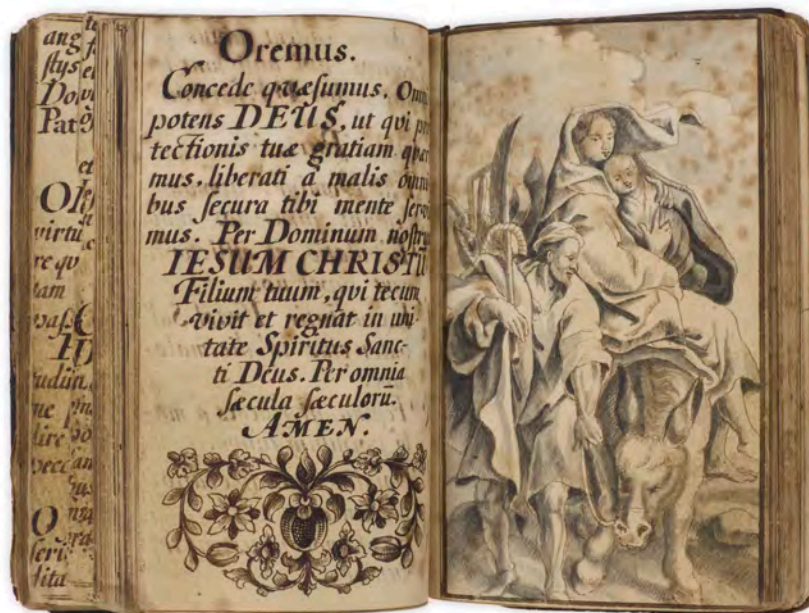 ang
Do
Pat
virtu
re qu
tam
Oremus.
Concede quæſumus, Omn
potens DEUS, ut qui p
tectionis tuæ gratiam quær
mus, liberati a malis omni
bus ſecura tibi mente ſerv
mus. Per Dominum noſtru
IESUM CHRISTŪ
Filium tuum, qui tecum
vivit et regnat in uni
tate Spiritus Sanc-
ti Deus. Per omnia
ſæcula ſæculorū.
AMEN.